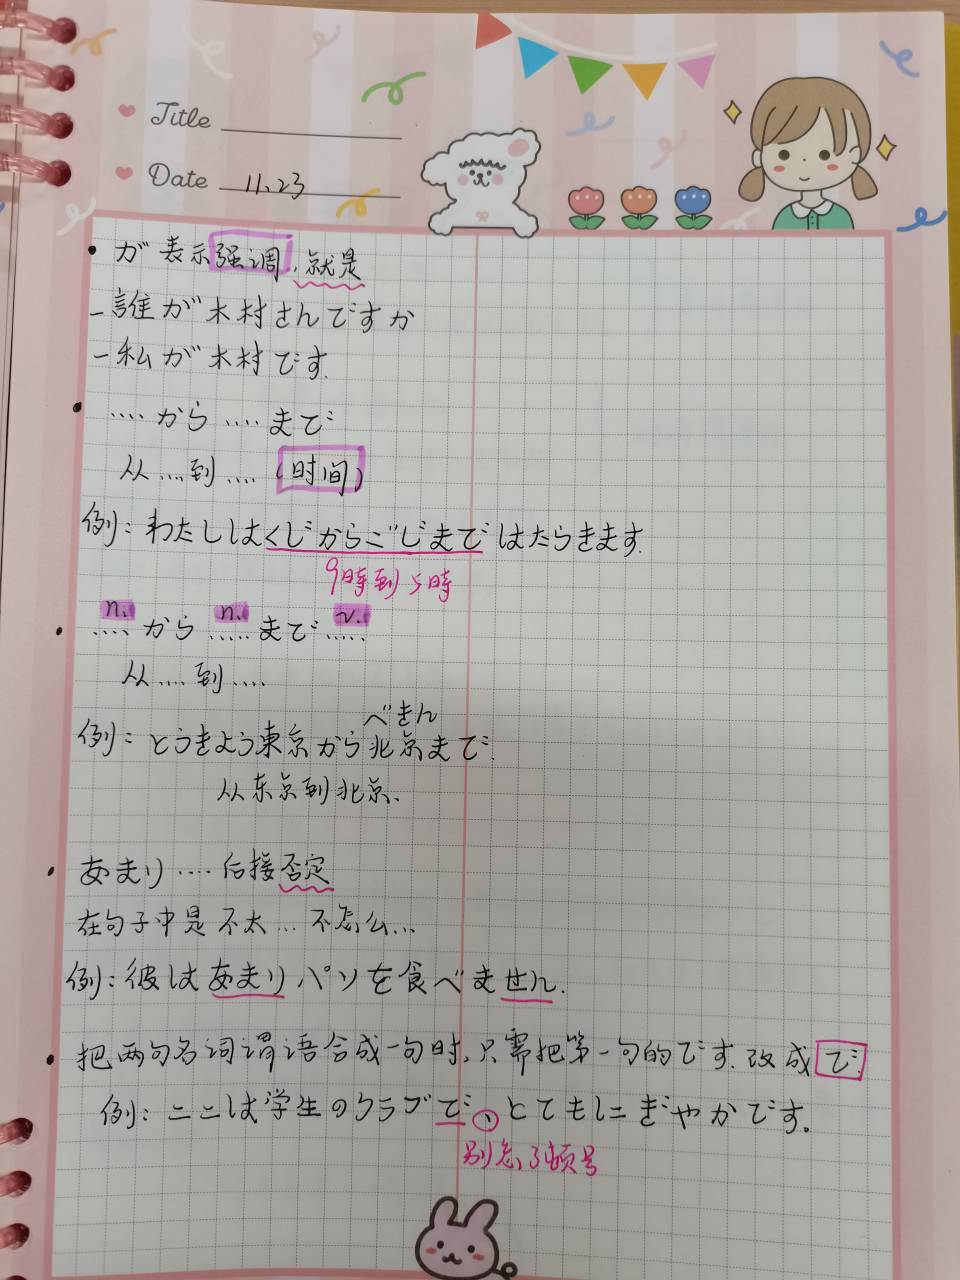 Title
Date 11.23
• が 表示强调.就是
- 誰が木村さんですか
- 私が木村です.
• ....から....まで
从....到....(时间)
例: わたしはくじからごじまではたらきます.
9時到5時
n. n. v.
• ....から.....まで.....
从....到....
べきん
例: とうきよう東京から北京まで.
从东京到北京.
• あまり....后接否定
在句子中是不太...不怎么...
例: 彼はあまりパソを食べません.
• 把两句名词谓语合成一句时.只需把第一句的です.改成で.
例: ここは学生のクラブで、とてもにぎやかです。
别忘了顿号